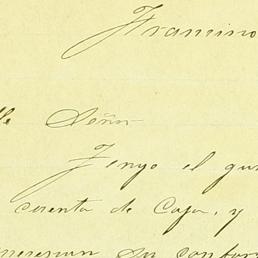 Francisco
Señor
Tengo el gus
cuenta de Caja, y
su confor